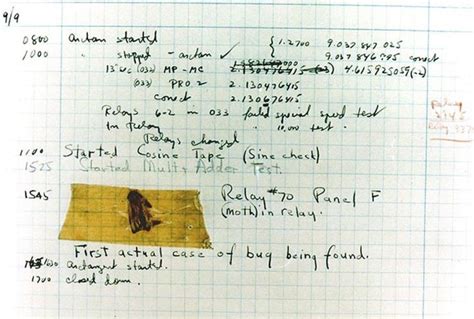 9/9
0800 Antan started { 1.2700 9.037 847 025
1000 " stopped - antan ✓ 9.037 846 995 correct
13"uc (032) MP-MC 2.130476415 4.615925059(-2)
(033) PRO 2 2.130476415
correct 2.130676415
Relays 6-2 in 033 failed special speed test
In Relay " 10,000 test.
Relays changed
Relay
1100 Started Cosine Tape (Sine check)
1525 Started Mult + Adder Test.
1545 Relay #70 Panel F
(moth) in relay.
First actual case of bug being found.
1630 antangent started.
1700 closed down.